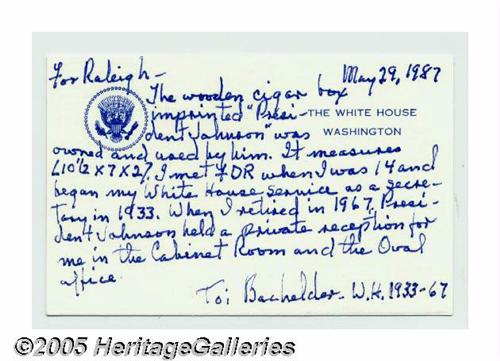 For Raleigh — May 29, 1987
The wooden cigar box
imprinted "Presi-
THE WHITE HOUSE
dent Johnson" was
WASHINGTON
owned and used by him. It measures
(10½ x 7 x 2). I met FDR when I was 14 and
began my White House service as a secre-
tary in 1933. When I retired in 1967, Presi-
dent Johnson held a private reception for
me in the Cabinet Room and the Oval
office.
Toi Bachelder - W.H. 1933-67
©2005 HeritageGalleries